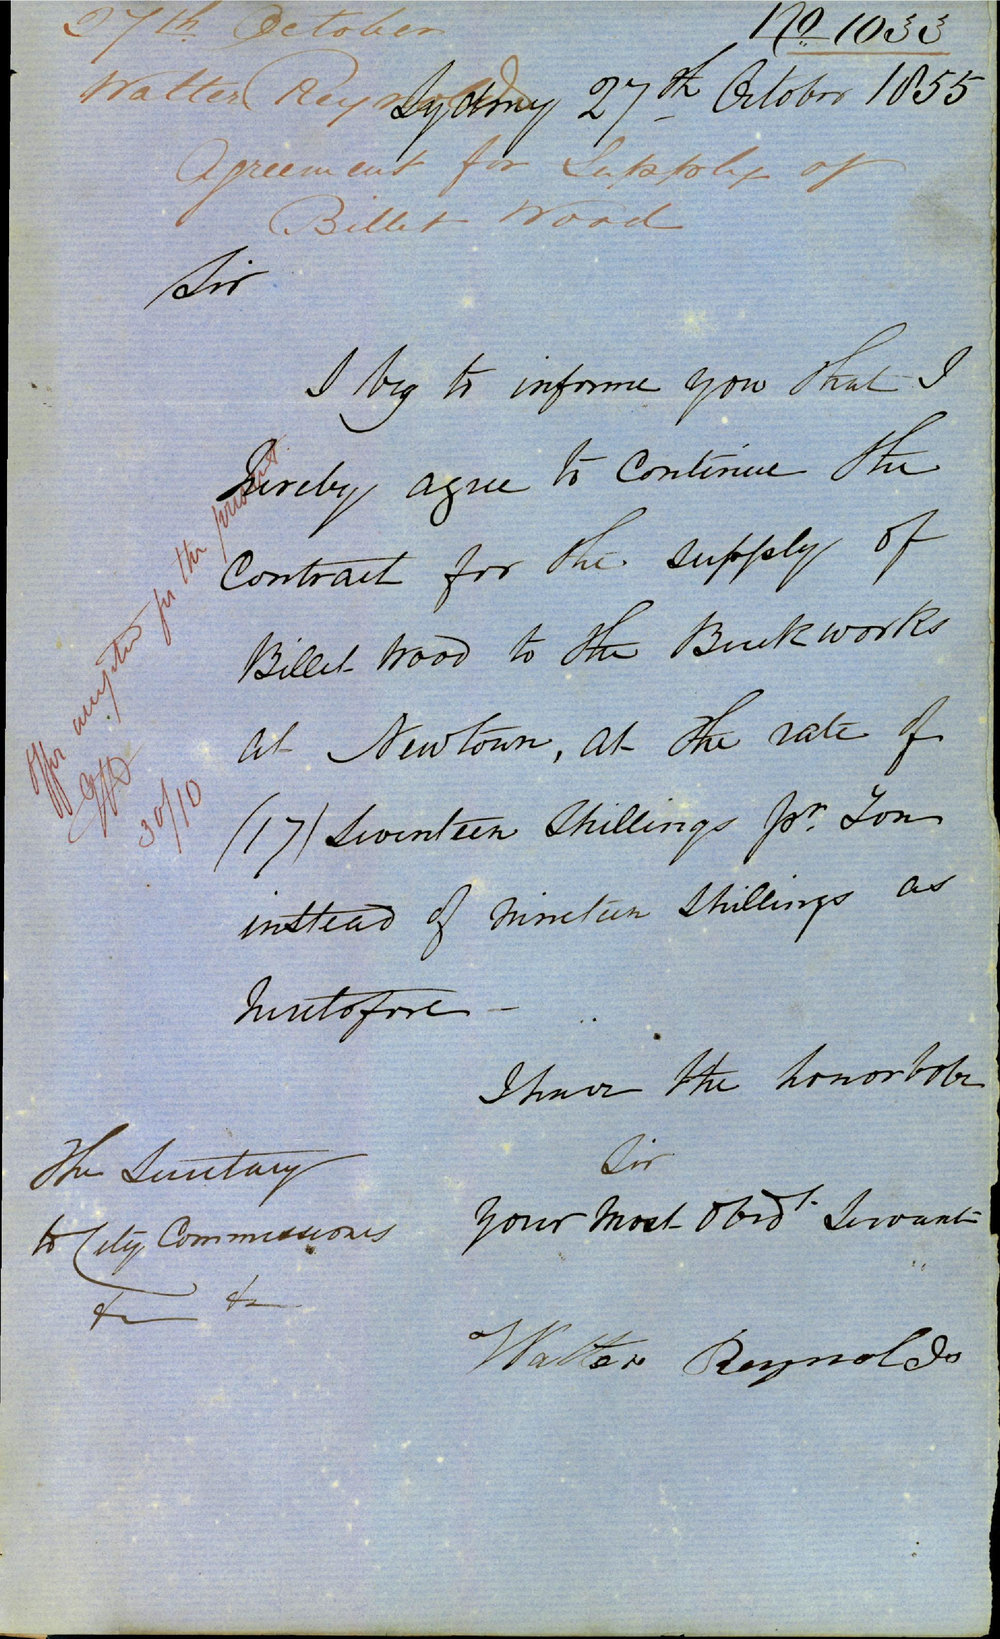 27th October
No 1033
Walter Reynolds
Sydney 27th October 1855
Agreement for Supply of
Billet Wood
Sir
I beg to informe you that I
hereby agree to Continue the
Contract for the supply of
Billet Wood to the Brickworks
at Newtown, at the rate of
(17) Seventeen Shillings pr. Ton
instead of Nineteen Shillings as
heretofore -
Offer accepted for the present
30/10
I have the honor to be
Sir
your Most Obedt. Servant
Walter Reynolds
The Secretary
to City Commissioners
&c &c